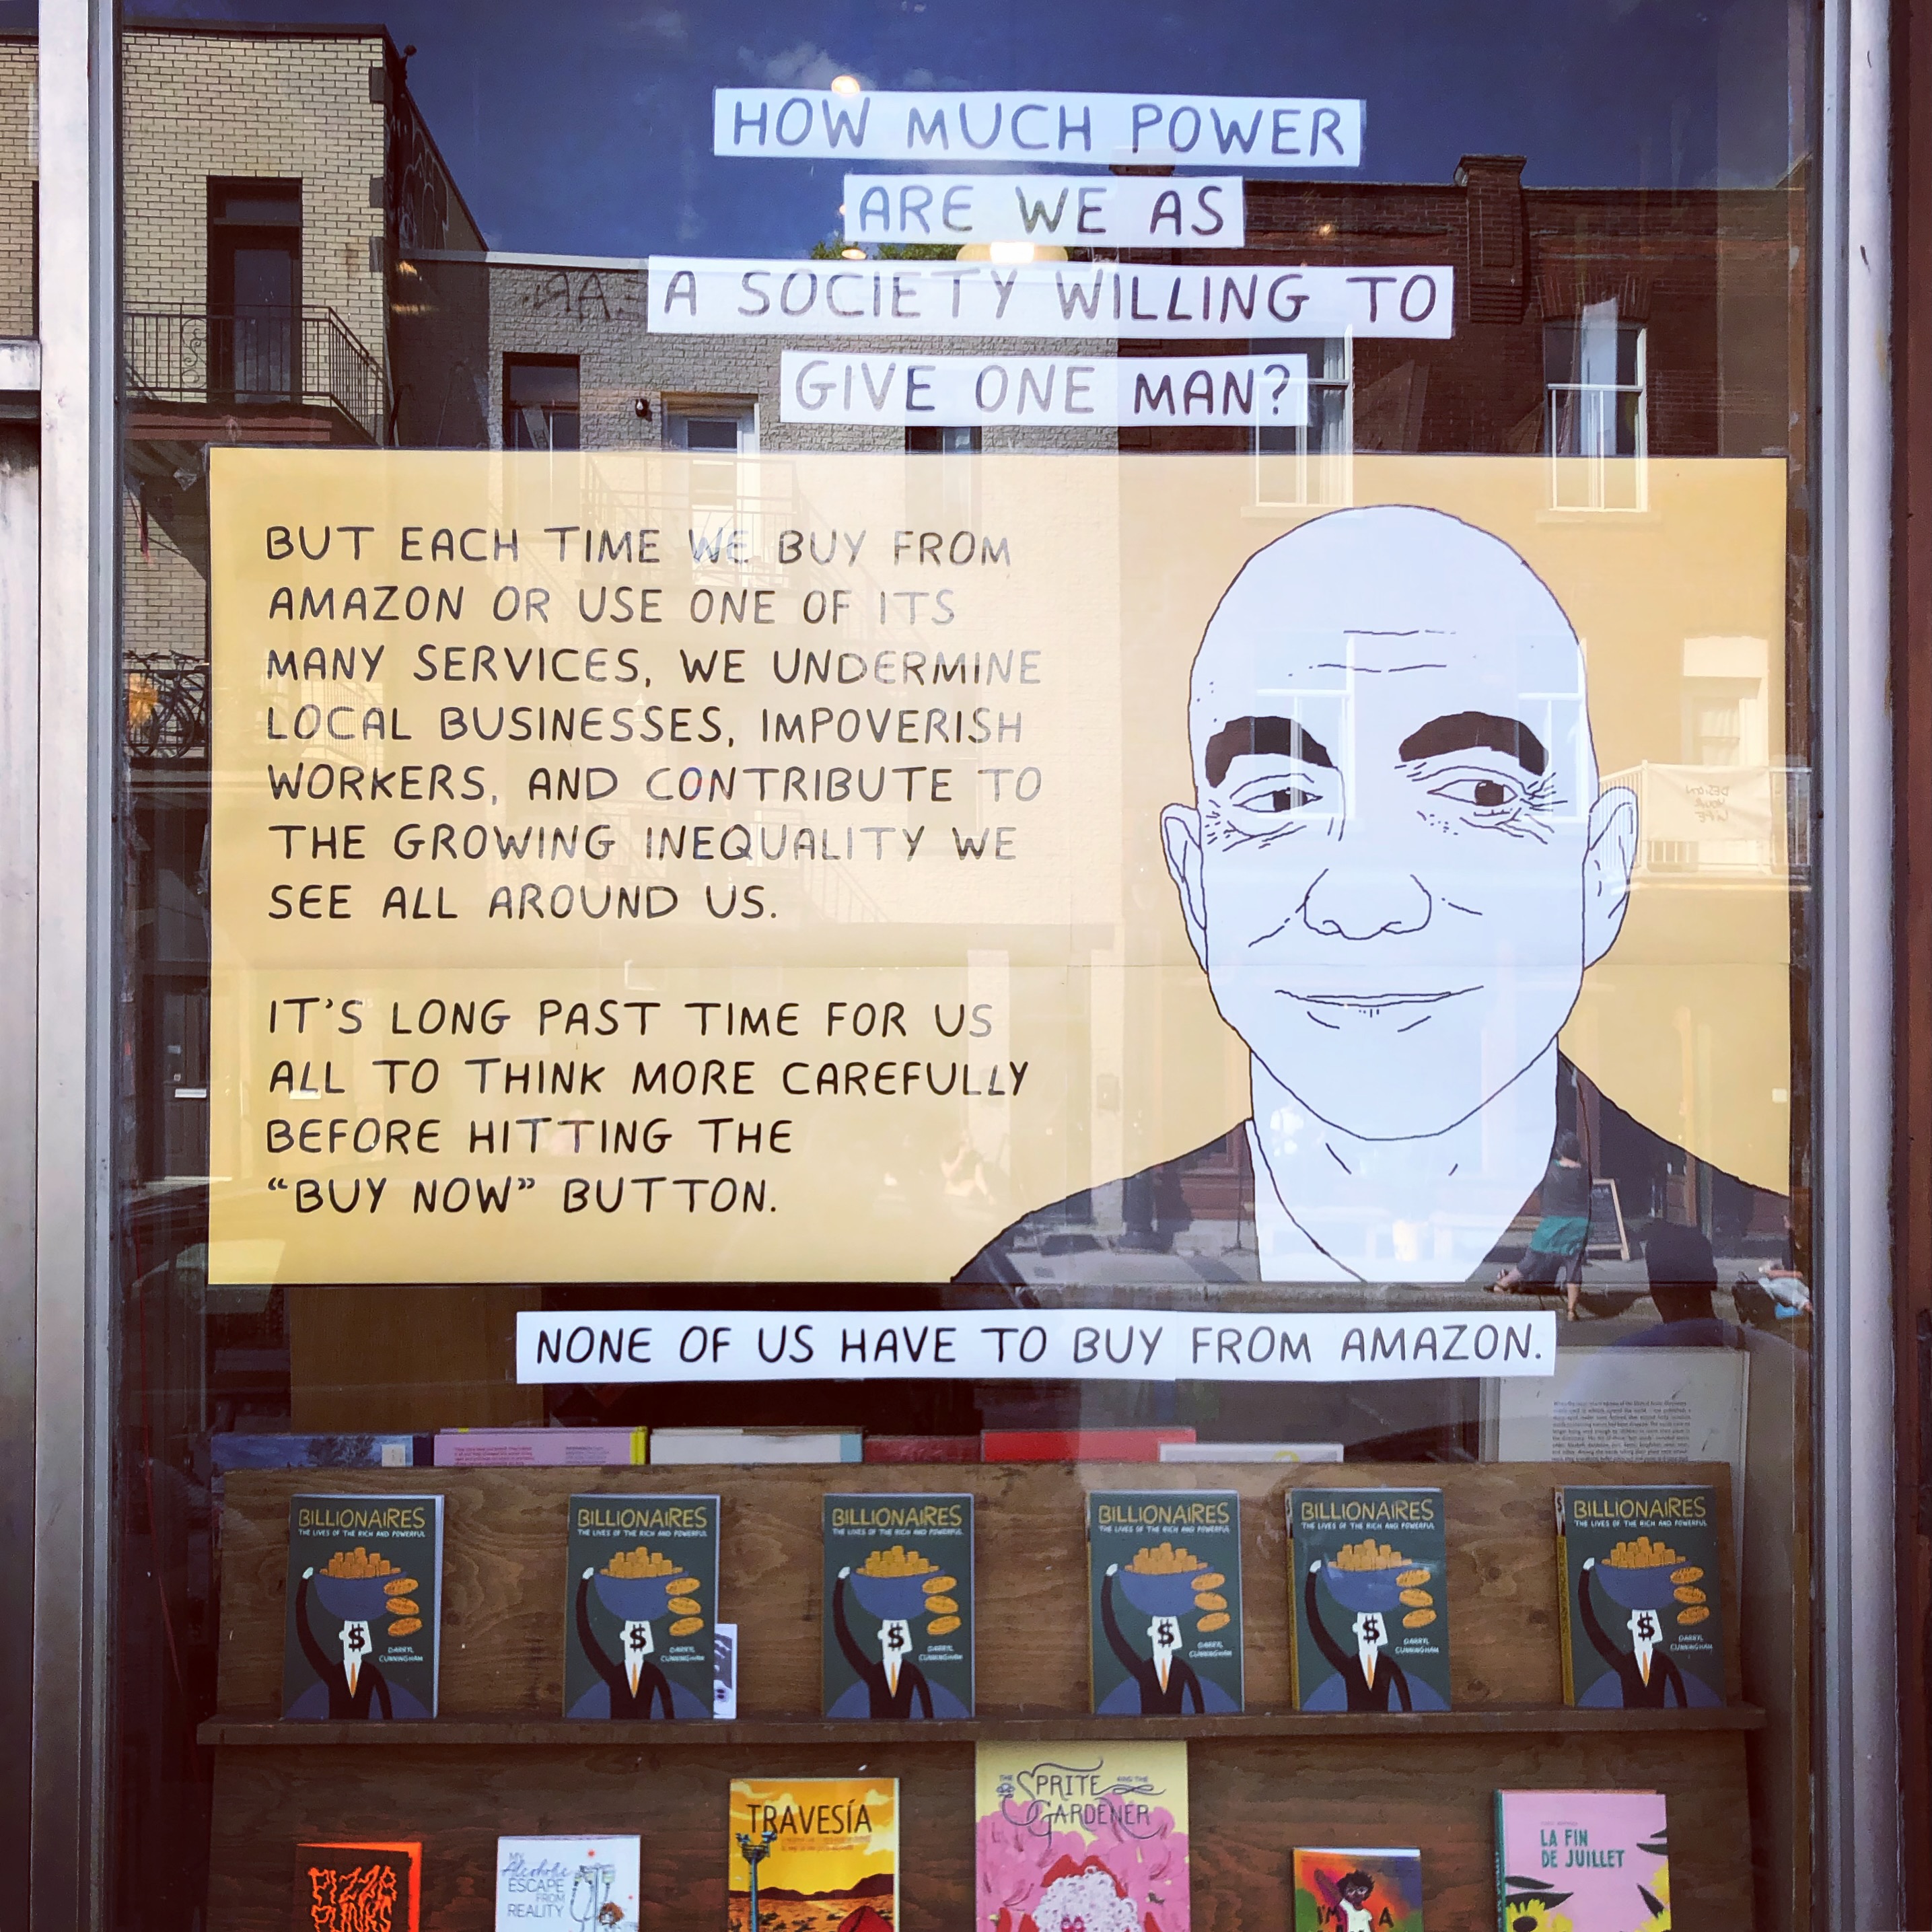 HOW MUCH POWER
ARE WE AS
A SOCIETY WILLING TO
GIVE ONE MAN?
BUT EACH TIME WE BUY FROM
AMAZON OR USE ONE OF ITS
MANY SERVICES, WE UNDERMINE
LOCAL BUSINESSES, IMPOVERISH
WORKERS, AND CONTRIBUTE TO
THE GROWING INEQUALITY WE
SEE ALL AROUND US.
IT'S LONG PAST TIME FOR US
ALL TO THINK MORE CAREFULLY
BEFORE HITTING THE
“BUY NOW” BUTTON.
DESIGN
YOUR
LIFE
NONE OF US HAVE TO BUY FROM AMAZON.
BILLIONAIRES
THE LIVES OF THE RICH AND POWERFUL
$
DARRYL
CUNNINGHAM
BILLIONAIRES
THE LIVES OF THE RICH AND POWERFUL
$
DARRYL
CUNNINGHAM
BILLIONAIRES
THE LIVES OF THE RICH AND POWERFUL
$
DARRYL
CUNNINGHAM
BILLIONAIRES
THE LIVES OF THE RICH AND POWERFUL
$
DARRYL
CUNNINGHAM
BILLIONAIRES
THE LIVES OF THE RICH AND POWERFUL
$
DARRYL
CUNNINGHAM
BILLIONAIRES
THE LIVES OF THE RICH AND POWERFUL
$
DARRYL
CUNNINGHAM
PIZZA
PUNKS
MY
Alcoholic
ESCAPE
FROM
REALITY
TRAVESÍA
THE SPRITE AND THE
GARDENER
I'M A
LA FIN
DE JUILLET